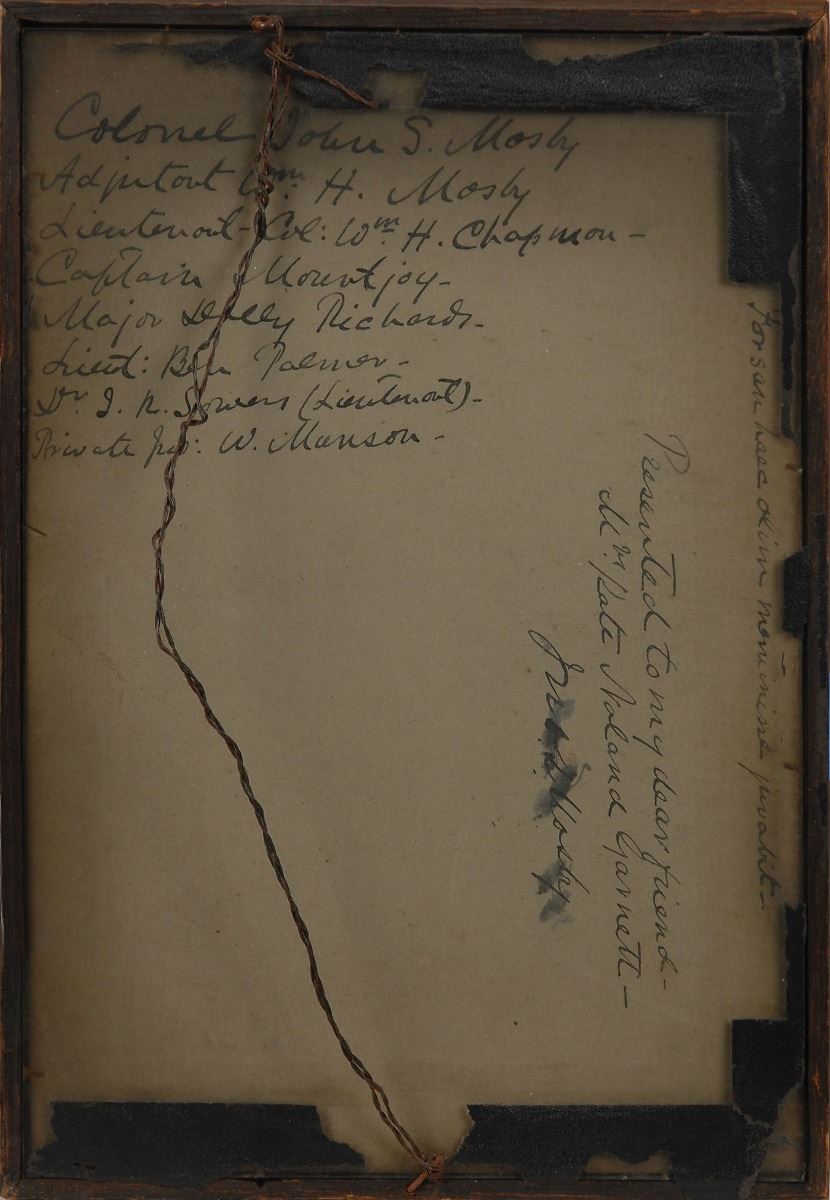 Colonel John S. Mosby
Adjutant Wm. H. Mosby
Lieutenant-Col: Wm. H. Chapman -
Captain Mountjoy -
Major Dolly Richards -
Lieut: Ben Palmer -
Dr. J. R. Sowers (Lieutenant) -
Private Jno: W. Munson -
Forsan haec olim meminisse juvabit -
Presented to my dear friend -
Mrs. Kate Noland Garnett -
Jno. S. Mosby